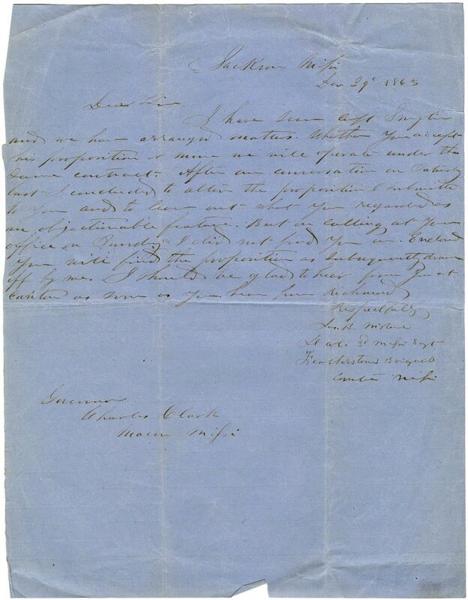 Jackson Missi
Dec 29th 1863
Dear Sir
I have seen Capt
and we have arranged matters. Whether You accept
his proposition or mine we will operate under the
same contract. After our conversation on Saturday
last I concluded to alter the proposition I submitted
to You and to leave out what You regarded as
an objectionable feature. But on calling at Your
office on Sunday I did not find You in. Enclosed
You will find the proposition as subsequently drawn
off by me. I should be glad to hear from You at
Canton as soon as You hear from Richmond
Respectfully
Lt Col 3d Missi Regt
Featherstons Brigade
Canton Missi
Governor
Charles Clark
Macon Missi